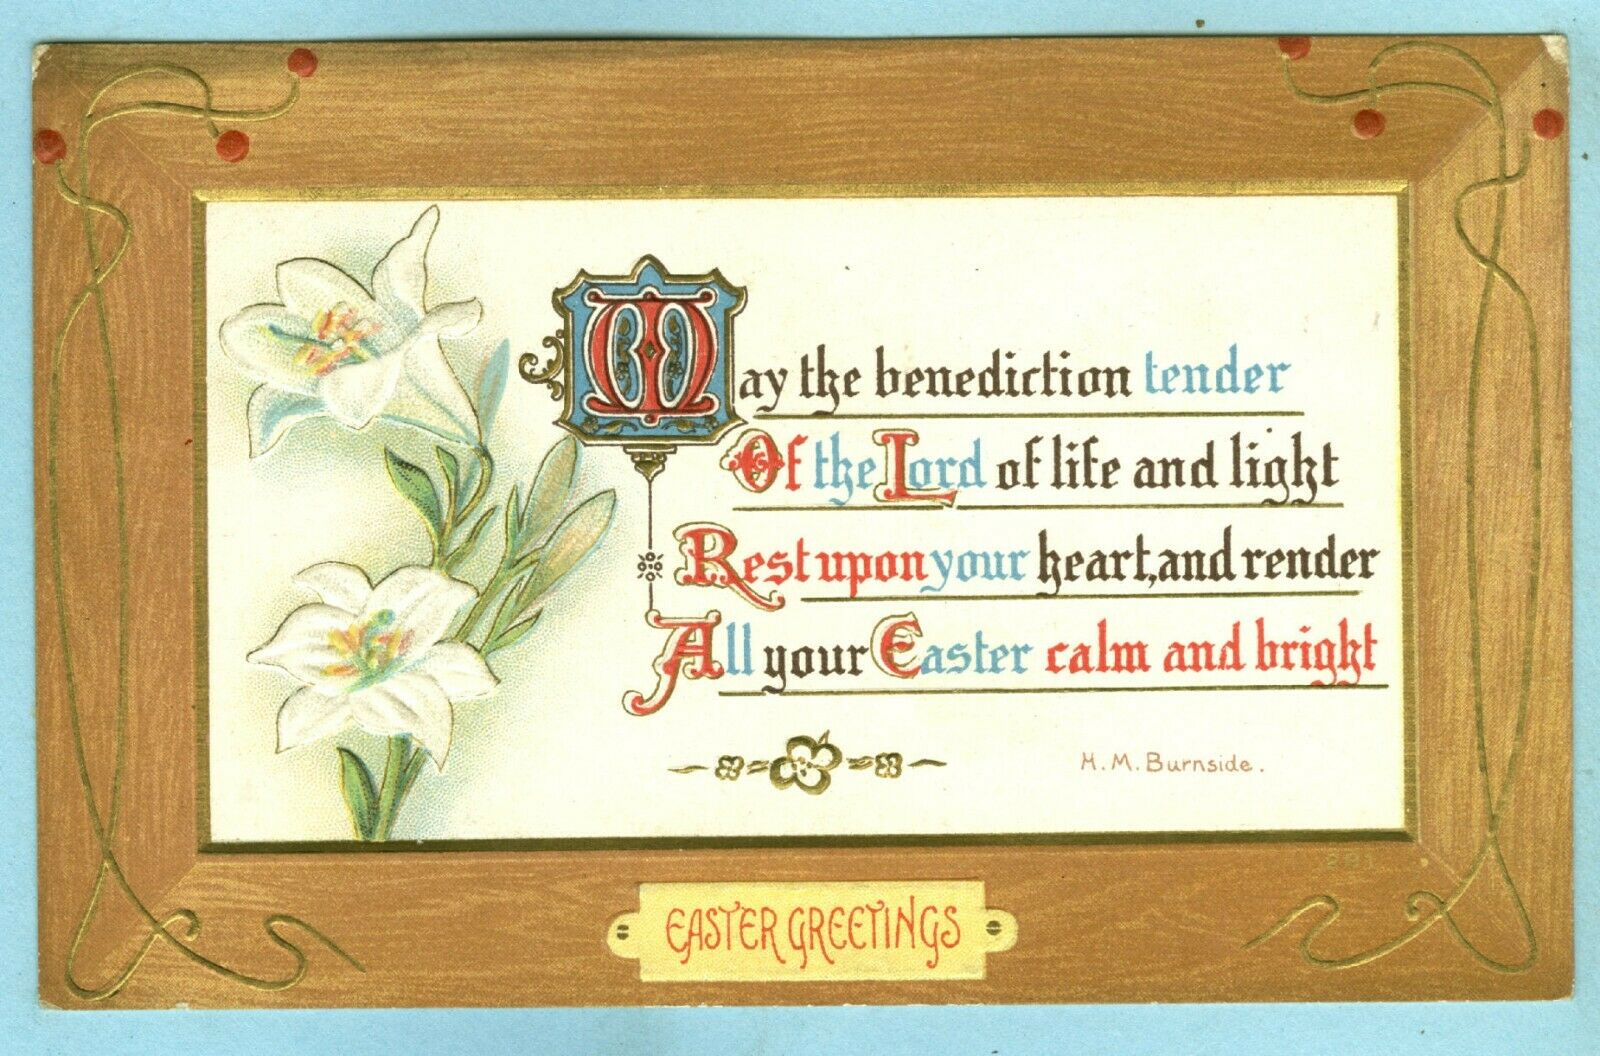 May the benediction tender
Of the Lord of life and light
Rest upon your heart, and render
All your Easter calm and bright
H. M. Burnside.
EASTER GREETINGS